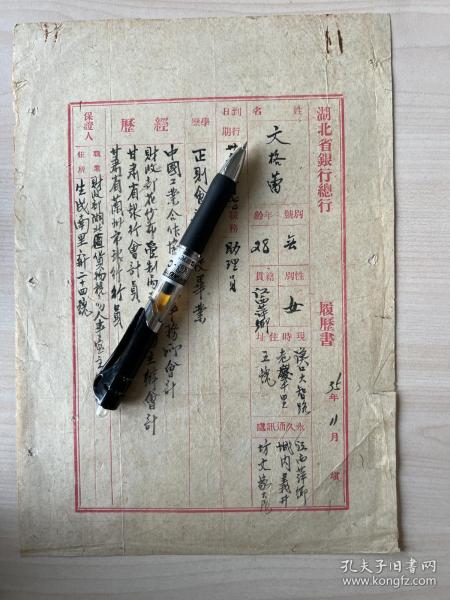 湖北省銀行總行 履歷書
35年11月 填
姓名 文格蘭
別號 無
年齡 28
性別 女
籍貫 江西萍鄉
現時住址 漢口大智路老慶平里五號
永久通訊處 江西萍鄉城內義井坊文家
到行日期
職務 助理員
學歷 正則會 畢業
經歷 中國工業合作協 會計
財政部花竹布管制局 會計
甘肅省銀行會計員
甘肅省蘭州市銀行行員
保證人
職業 財政部湖北區貨物稅 人事室主
住所 生成南里新二十四號
孔夫子旧书网
www.kongfz.com